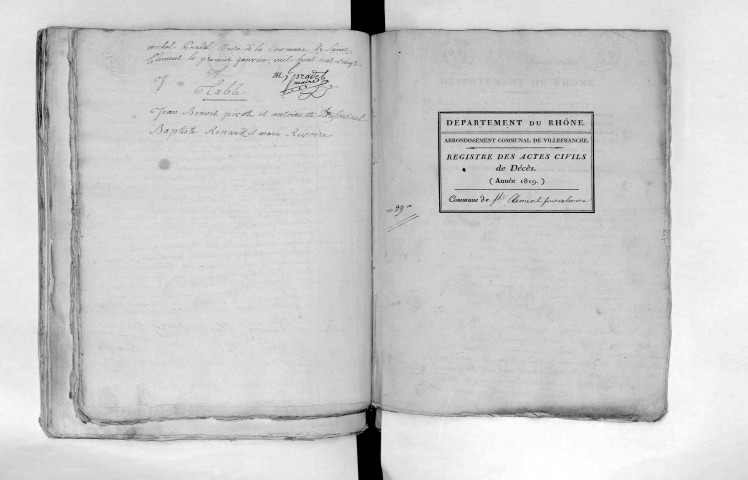 michel Pradel, Maire de la Commune de Saint
Clement le premier janvier mil huit cent vingt
M. Pradel
maire
Table
Jean Benoit et antoinette
Baptiste Renaud et marie Riviere
DÉPARTEMENT DU RHÔNE.
ARRONDISSEMENT COMMUNAL DE VILLEFRANCHE.
REGISTRE DES ACTES CIVILS
de Décès.
( Année 1819. )
Commune de St. Clement